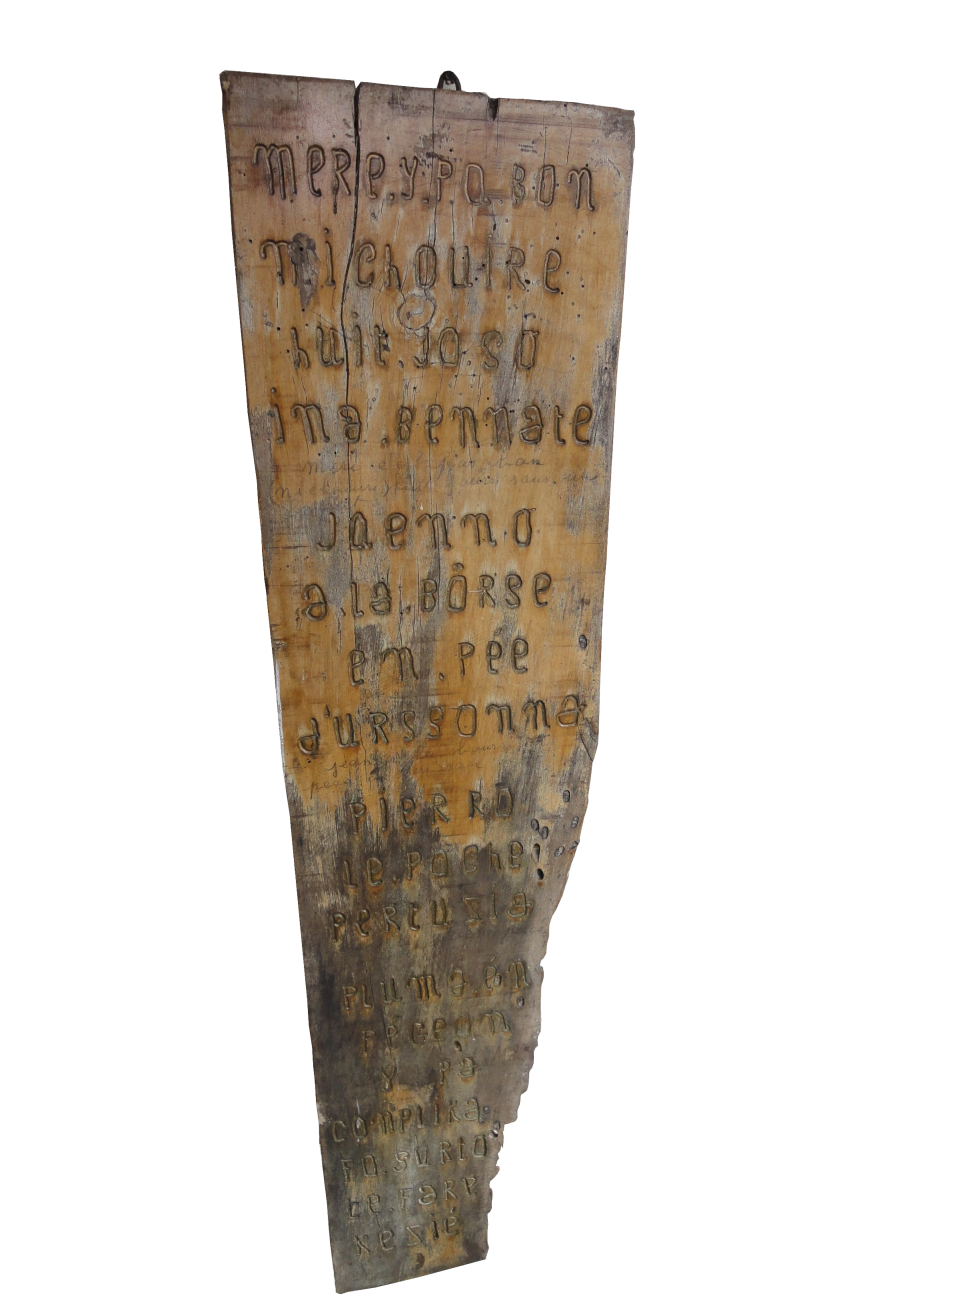 mere.y.pa.bon
michouire
huit.Jo.so
ina.Bennate
Jaenno
a.la.Börse
en.pée
d'urssonna
pierro
le.poche
percuzia
pluma.én
pégeon
y pa
complika.
fo.surto
ce.farp
kezié